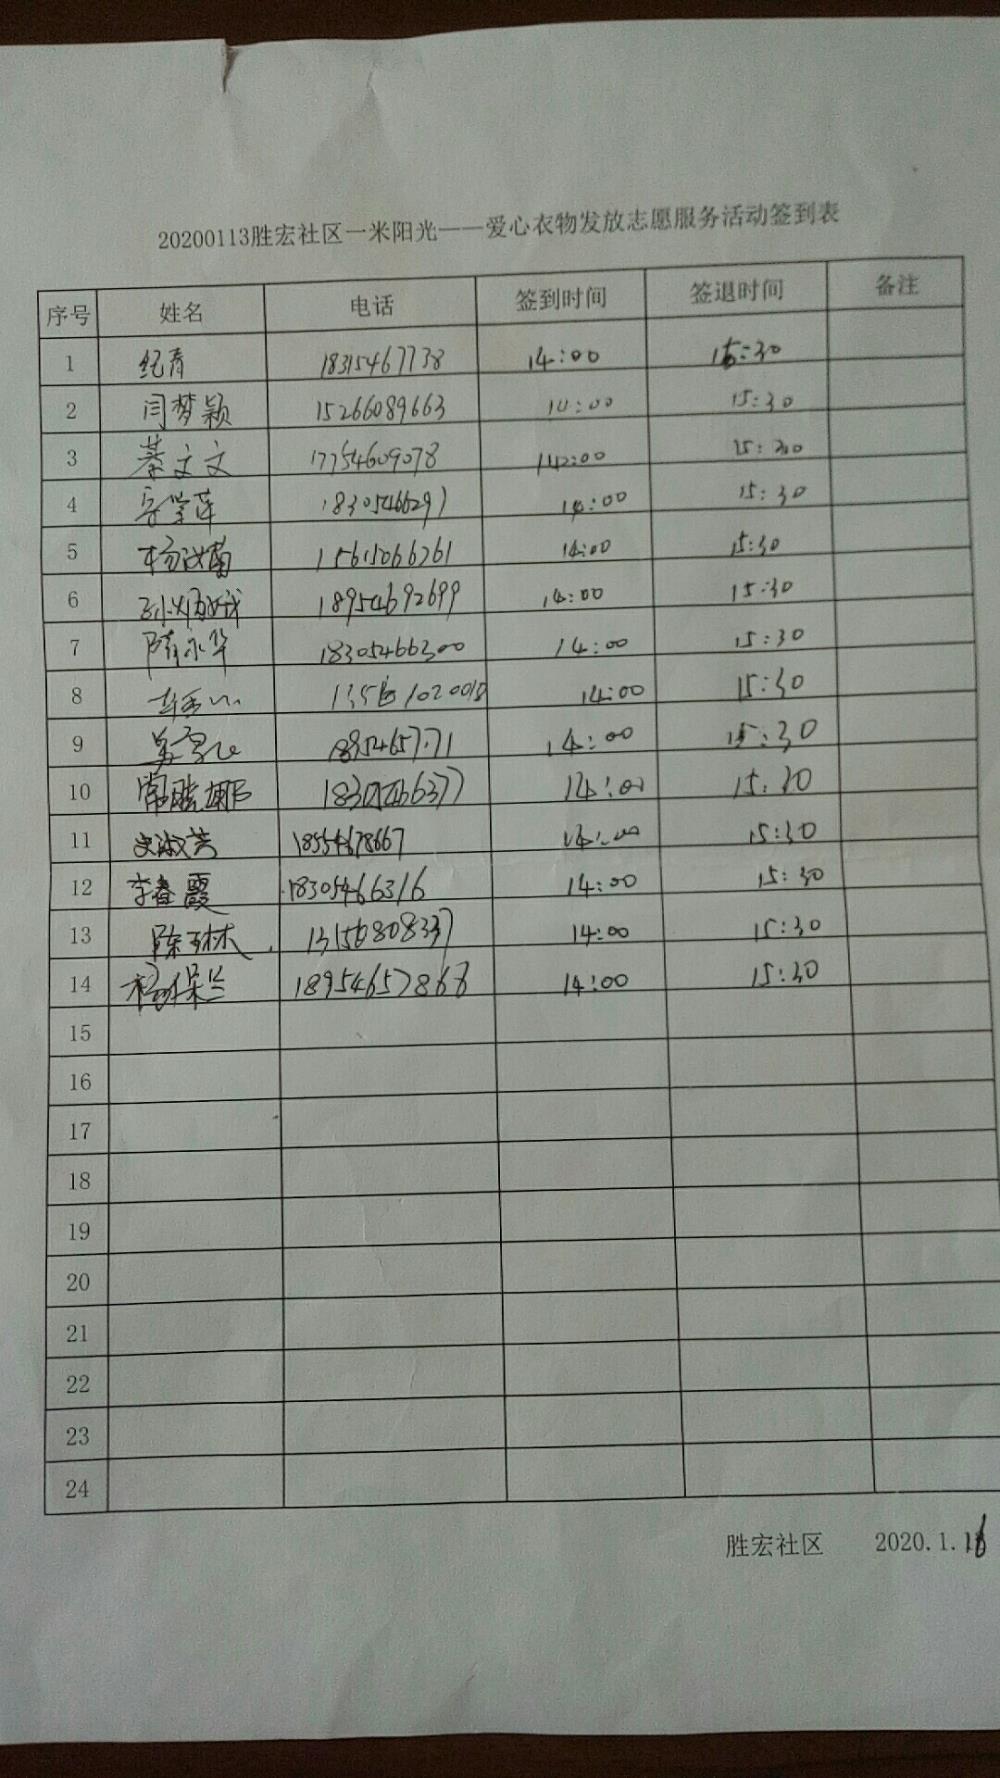 20200113胜宏社区一米阳光——爱心衣物发放志愿服务活动签到表
序号 姓名 电话 签到时间 签退时间 备注
1 纪青 18315467738 14:00 15:30
2 闫梦颖 15266089663 14:00 15:30
3 綦文文 17754609078 14:00 15:30
4 18305466297 14:00 15:30
5 杨汝菊 15615066761 14:00 15:30
6 18954692699 14:00 15:30
7 隋永华 18305466300 14:00 15:30
8 14:00 15:30
9 14:00 15:30
10 常晓娜 18305466377 14:00 15:30
11 史淑芳 18554678667 14:00 15:30
12 李春霞 18305466316 14:00 15:30
13 陈玉林 14:00 15:30
14 杨保兰 18954657868 14:00 15:30
15
16
17
18
19
20
21
22
23
24
胜宏社区 2020.1.16